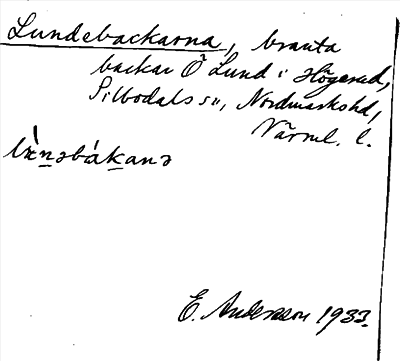 Lundebackarna, branta
backar Ö Lund i Högerud,
Silbodals sn, Nordmarkshd,
Värml. l.
E. Andersson 1933.